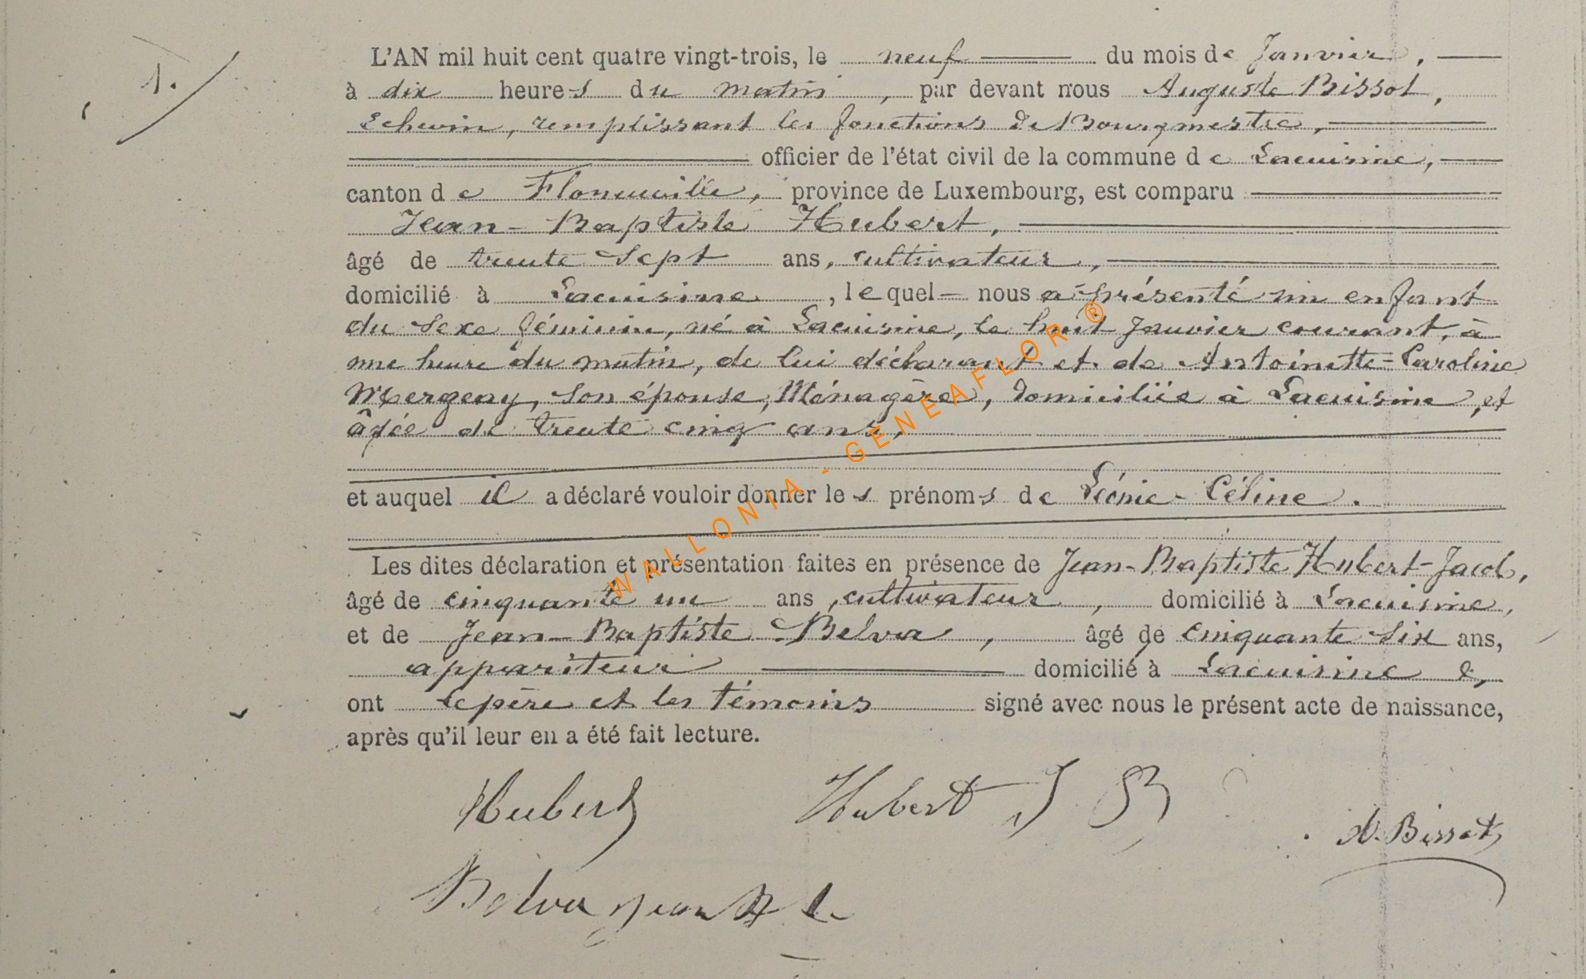 1.
L'AN mil huit cent quatre vingt-trois, le neuf du mois de Janvier,
à dix heures du matin, par devant nous Auguste Bissot,
Echevin, remplissant les fonctions de Bourgmestre,
officier de l'état civil de la commune de Lacuisine,
canton de Florenville, province de Luxembourg, est comparu
Jean-Baptiste Hubert,
âgé de trente sept ans, cultivateur,
domicilié à Lacuisine, lequel nous a présenté un enfant
du sexe féminin, né à Lacuisine, le huit Janvier courant, à
une heure du matin, de lui déclarant et de Antoinette-Caroline
Mergeay, son épouse, Ménagère, domiciliée à Lacuisine, et
âgée de trente cinq ans,
et auquel il a déclaré vouloir donner les prénoms de Léonie-Céline.
Les dites déclaration et présentation faites en présence de Jean-Baptiste Hubert-Jacob,
âgé de cinquante un ans, cultivateur, domicilié à Lacuisine,
et de Jean-Baptiste Belva, âgé de cinquante six ans,
appariteur domicilié à Lacuisine &,
ont le père et les témoins signé avec nous le présent acte de naissance,
après qu'il leur en a été fait lecture.
Hubert
Hubert J B
A. Bissot
Belva jean B
WALLONIA - GENEAFLOR ®